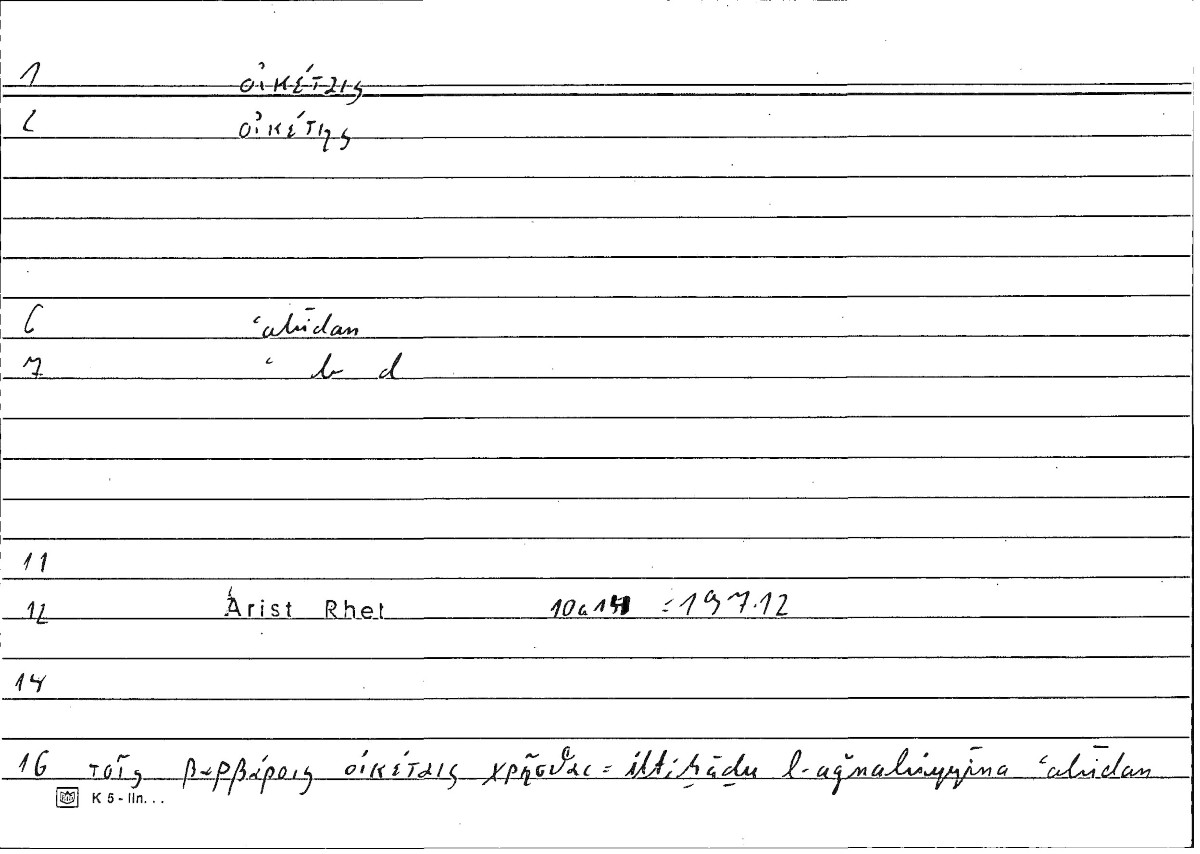 1 οἰκέταις
2 οἰκέτης
6 ʿabīdan
7 ʿ b d
11
12 Arist Rhet = 197.12
14
16 τοῖς βαρβάροις οἰκέταις χρῆσθαι = ittiḫāḏu l-aǧnabiyyīna ʿabīdan
K 5 - IIn. . .